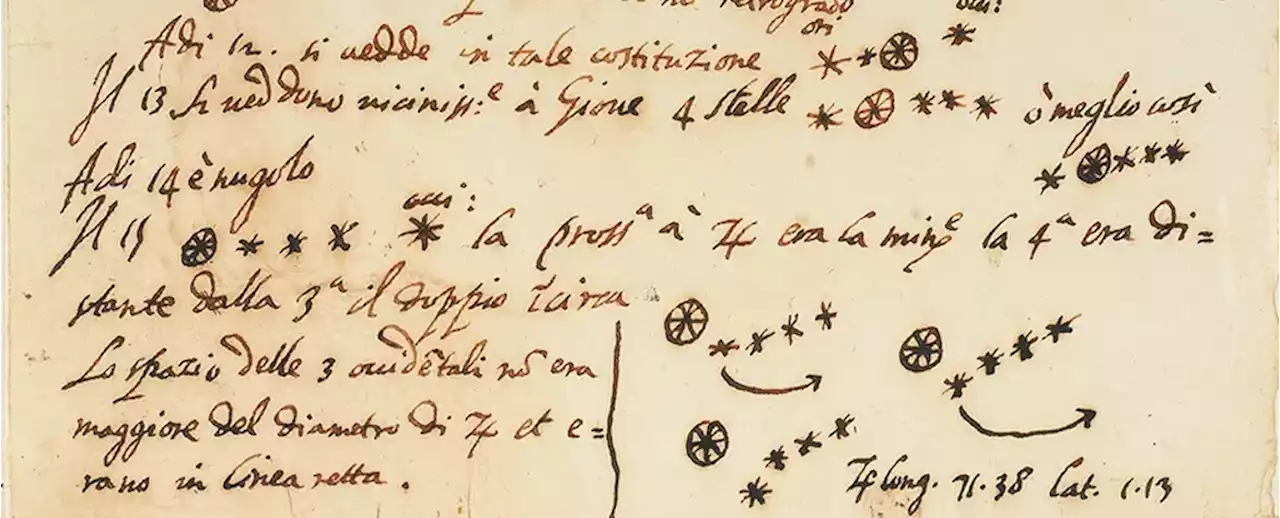 no retrogrado
Adi 12. si uedde in tale costituzione ori occi:
Il 13 si ueddono uiciniss:e à Gioue 4 stelle ò meglio così
Adi 14 è nugolo
Il 15 occi: la prossa à ♃ era la mine la 4a era di=
stante dalla 3a il doppio
Lo spazio delle 3 ouidẽtali nõ era
maggiore del diametro di ♃ et e=
rano in linea retta.
♃ long. 71.38 lat. 1.13